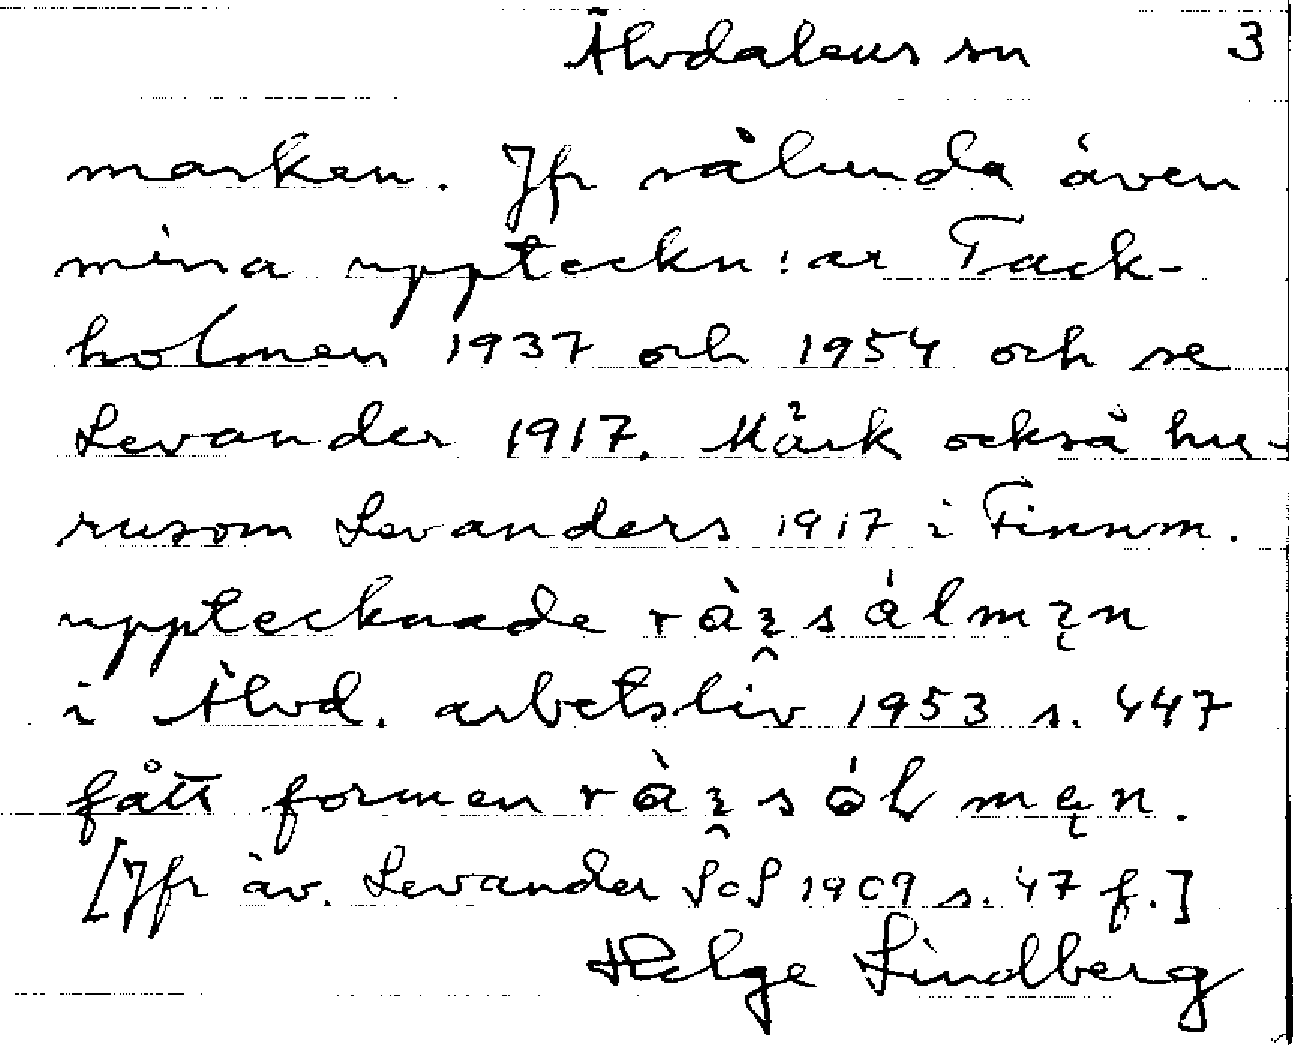 Älvdalens sn 3
marken. Jfr sålunda även
mina uppteckn:ar Tack-
holmen 1937 och 1954 och se
Levander 1917. Märk också hu-
rusom Levanders 1917 i Finnm.
upptecknade
i Älvd. arbetsliv 1953 s. 447
fått formen
[Jfr äv. Levander SoS 1909 s. 47 f.]
Helge Lindberg